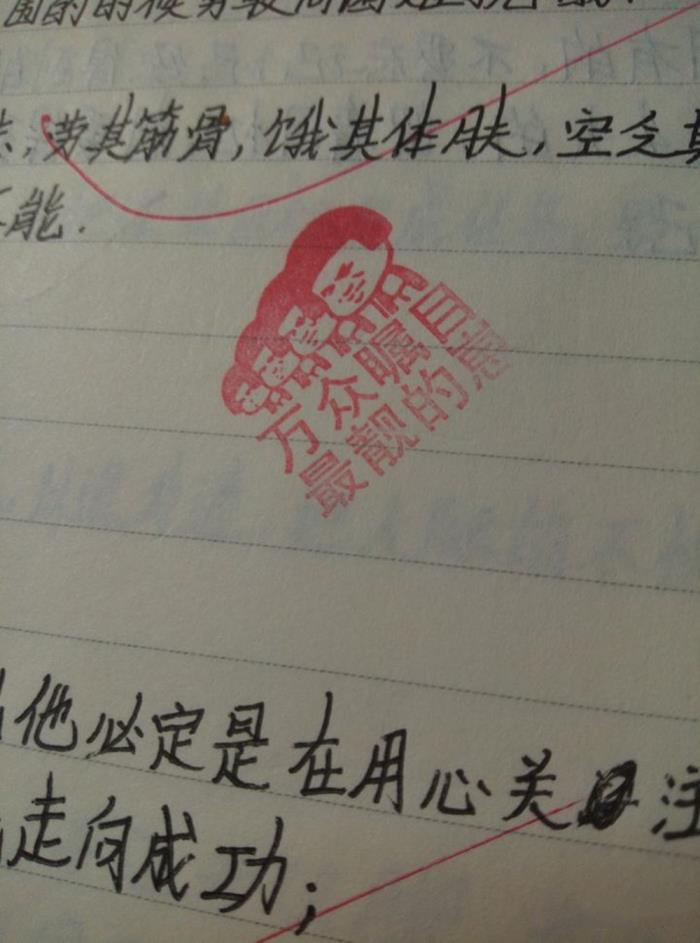 劳其筋骨,饿其体肤,空乏其
能.
万众瞩目
最靓的崽
他必定是在用心关注
走向成功;